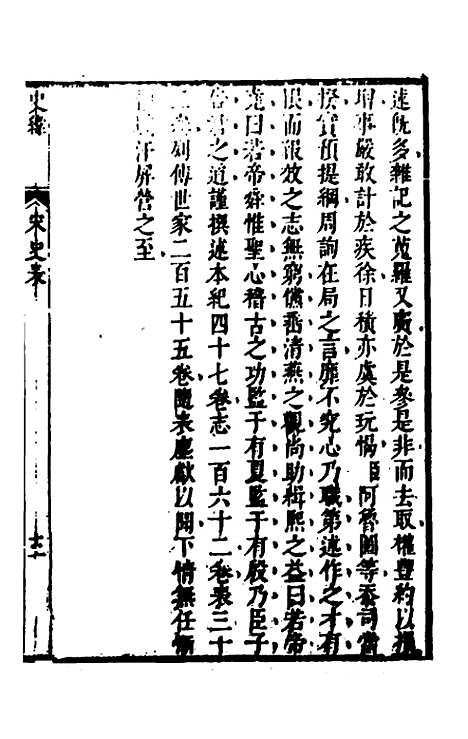 速既多雜記之蒐羅又廣於是參是非而去取權豐約以損
增事嚴敢計於疾徐日積亦虞於玩愒臣阿魯圖等忝司當
揆實預提綱周詢在局之言靡不究心乃職第述作之才有
限而報效之志無窮儻丞清燕之觀尚助緝熙之益曰若帝
堯曰若帝舜惟聖心稽古之功監于有夏監于有殷乃臣子
告君之道謹撰述本紀四十七卷志一百六十二卷表三十
二卷列傳世家二百五十五卷隨表塵獻以聞下情無任慚
懼戰汗屏營之至
史緯
宋史表